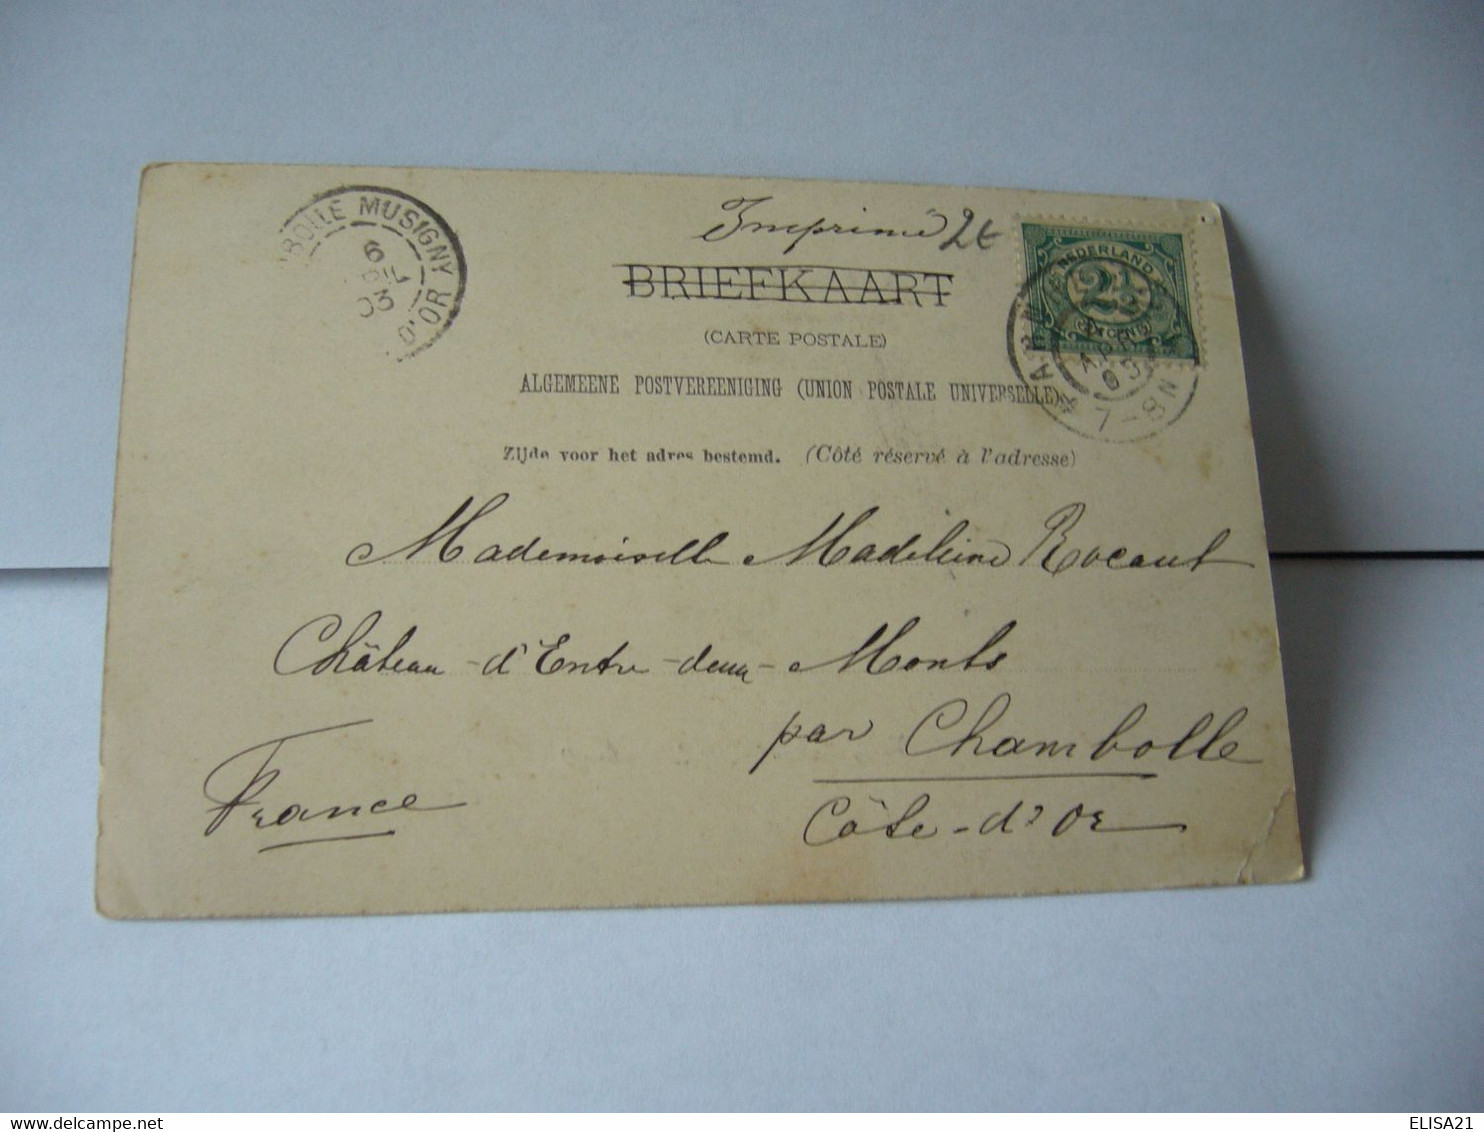 Imprimé
BRIEFKAART
(CARTE POSTALE)
ALGEMEENE POSTVEREENIGING (UNION POSTALE UNIVERSELLE)
Zijde voor het adres bestemd. (Côté réservé à l'adresse)
Mademoiselle Madeleine Rocault
Château-d'Entre-deux-Monts
par Chambolle
Côte-d'Or
France
BOLLE MUSIGNY
6
03
D'OR
NEDERLAND
2½
CENT
APR
03
7-8N
delcampe.net
ELISA21